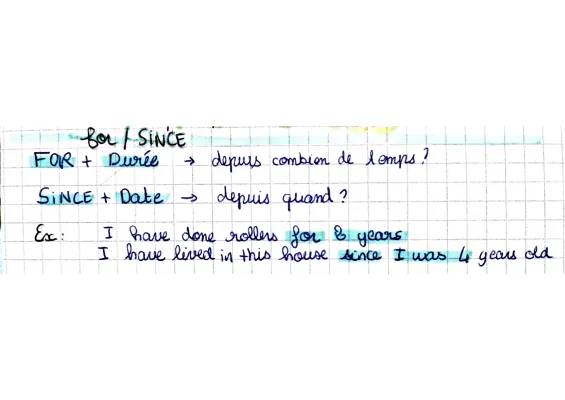 for / SINCE
FOR + Durée → depuis combien de temps ?
SINCE + Date → depuis quand ?
Ex : I have done rollers for 8 years
I have lived in this house since I was 4 years old